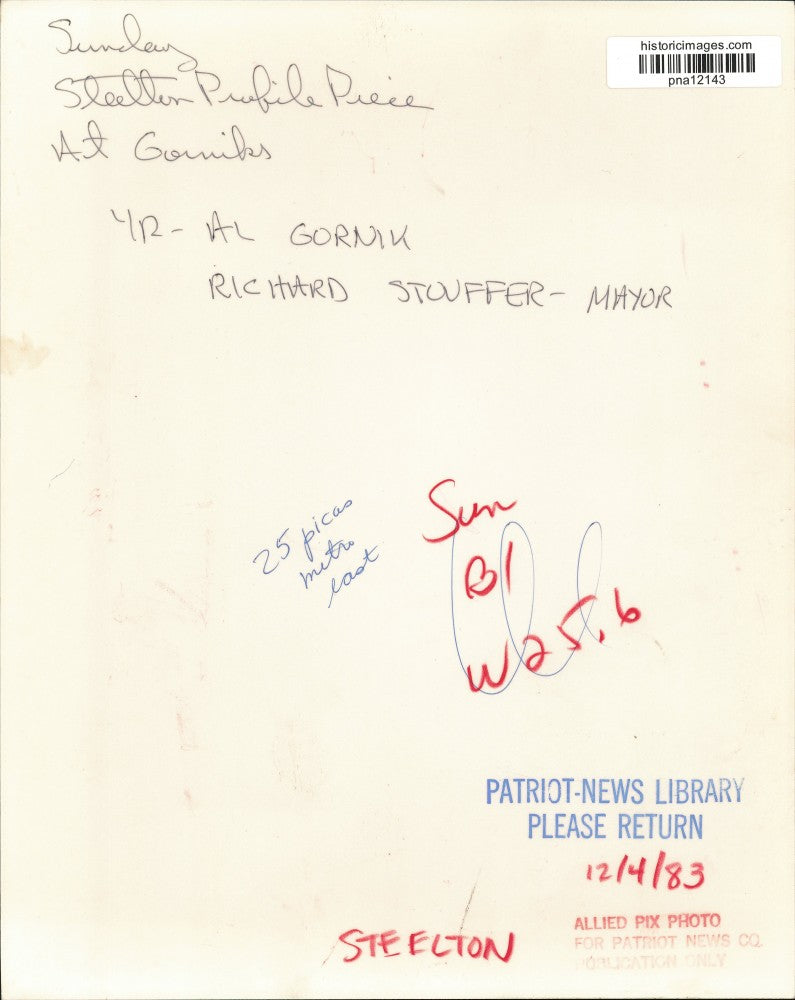 Sunday
Steelton Profile Piece
At Gorniks
historicimages.com
pna12143
L/R - AL GORNIK
RICHARD STOUFFER - MAYOR
25 picas
metro
east
Sun
B1
W25.6
PATRIOT-NEWS LIBRARY
PLEASE RETURN
12/4/83
STEELTON
ALLIED PIX PHOTO
FOR PATRIOT NEWS CO.
PUBLICATION ONLY